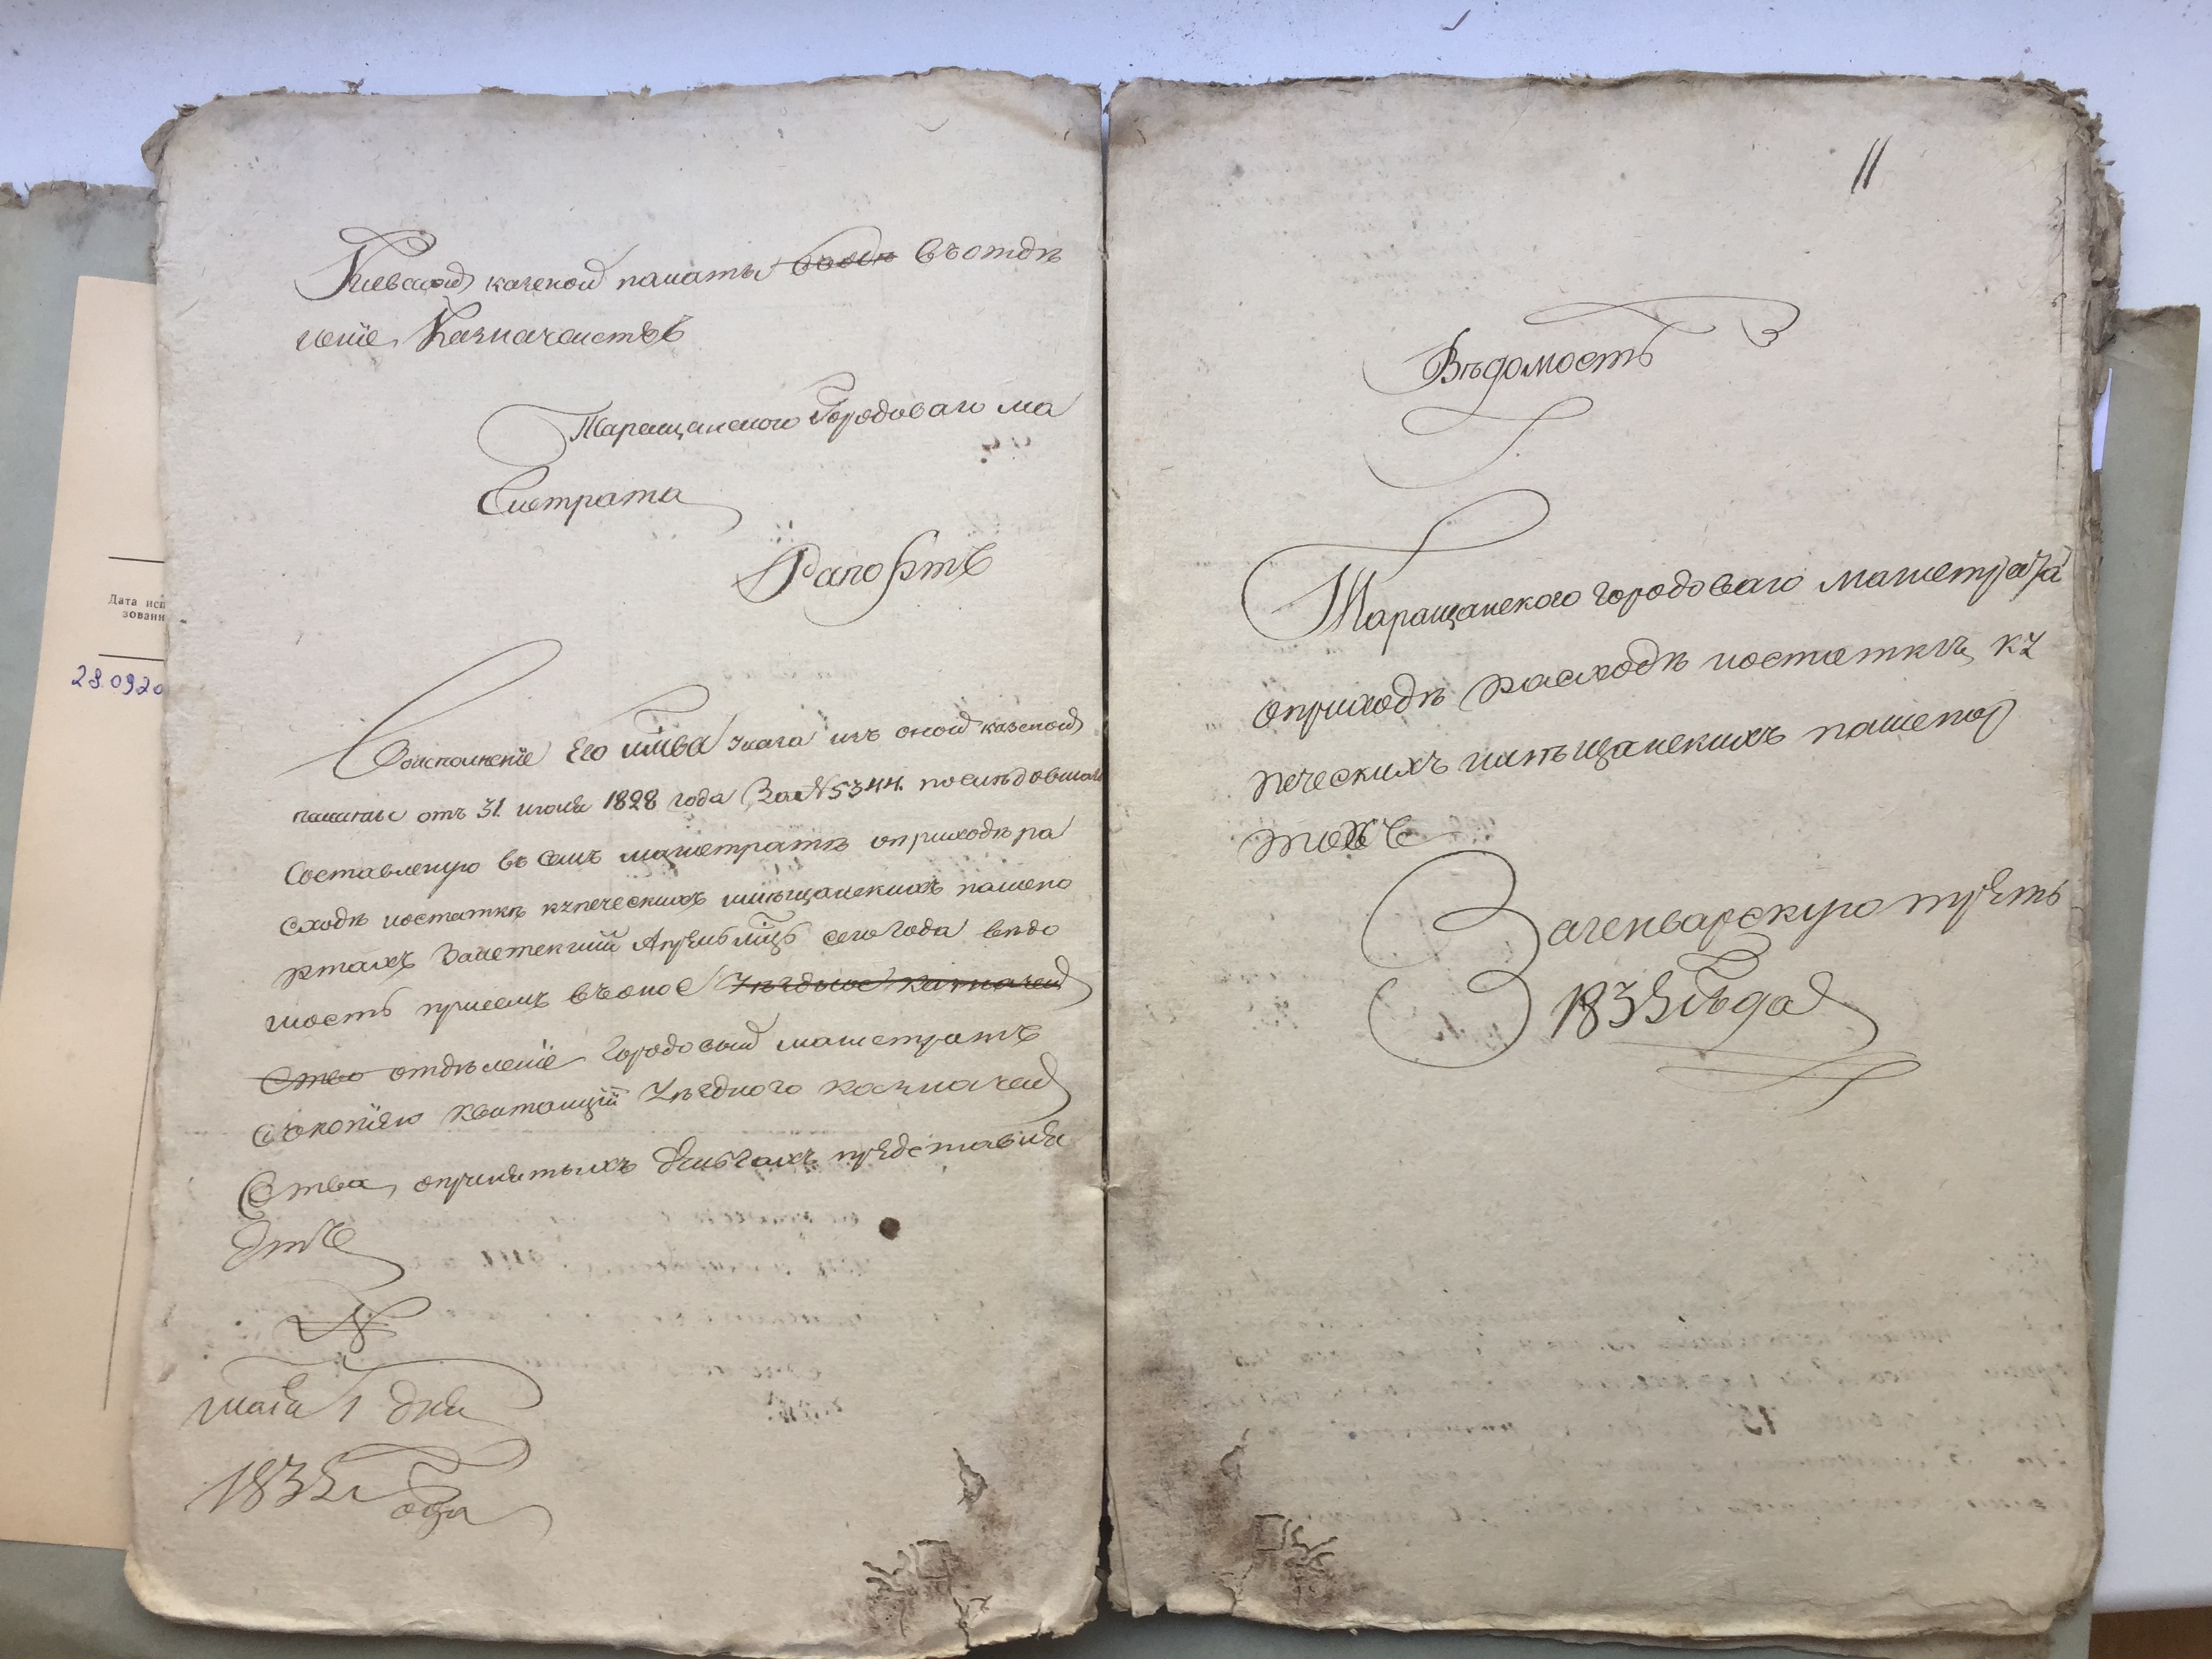 Киевской казеной палаты въ отдѣ
ление Казначействъ
Таращанского Городоваго ма
гистрата
Рапортъ
Воисполнение Его ИМПВА указа изъ оной казеной
палаты отъ 31. июля 1828 года За №5344. последовшаго
Составленую въ семъ магистратѣ оприходѣ ра
сходѣ иостаткѣ купеческихъ имѣщанскихъ пашепо
ртахъ Заистекший Апрель мцъ сего года вѣдо
мость присемъ въоное Уѣздное казначей
Ство отдѣление Городовый магистратъ
Съкопиею Квитанций Уѣздного казначей
Ства, опринятыхъ деньгахъ представля
етъ
№
мая 1 дня
1835 года
11
Вѣдомость
Таращанского городоваго магистрата
оприходѣ расходѣ иостаткѣ, ку
печескихъ имѣщанскихъ пашепор
товъ
Загенварскую треть
1835 года
Дата исп
зовани
28.0920